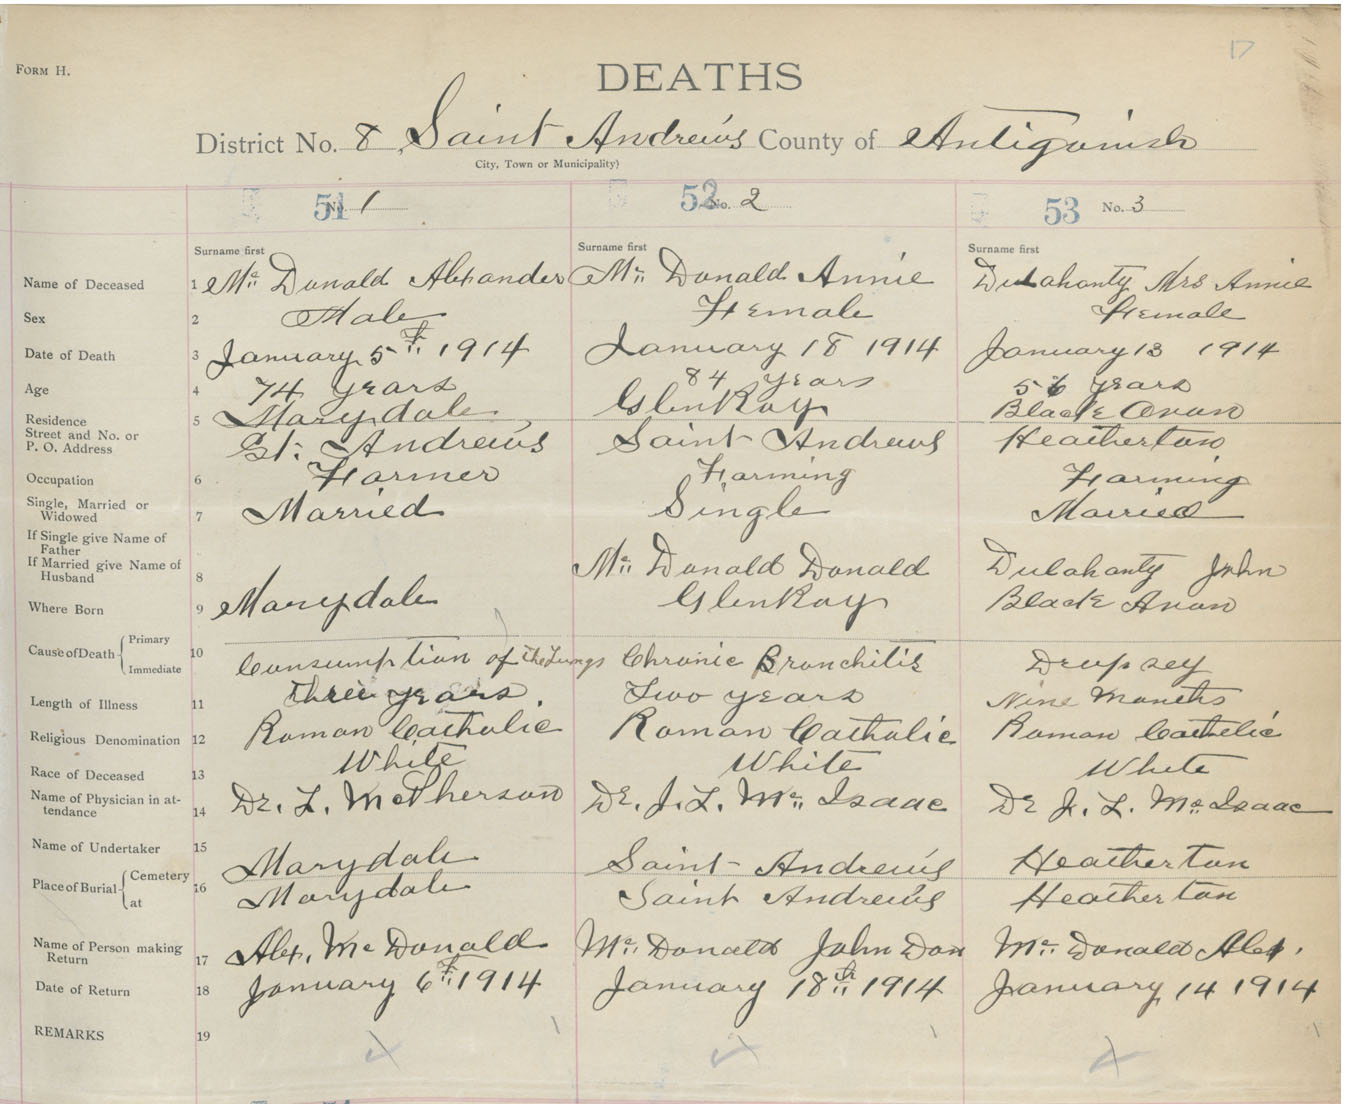 FORM H.
DEATHS
District No. 8, Saint Andrew's County of Antigonish
City, Town or Municipality)
51 No. 1 52 No. 2 53 No. 3
Surname first Surname first Surname first
Name of Deceased 1 Mc Donald Alexander Mc Donald Annie Dulahanty Mrs Annie
Sex 2 Male Female Female
Date of Death 3 January 5th 1914 January 18 1914 January 13 1914
Age 4 74 years 84 years 56 years
Residence 5 Marydale GlenRoy Black Avon
Street and No. or P. O. Address St. Andrew's Saint Andrews Heatherton
Occupation 6 Farmer Farming Farming
Single, Married or Widowed 7 Married Single Married
If Single give Name of Father
If Married give Name of Husband 8 Mc Donald Donald Dulahanty John
Where Born 9 Marydale GlenRoy Black Avon
Cause of Death Primary Immediate 10 Consumption of the Lungs Chronic Bronchitis Dropsey
Length of Illness 11 three years Two years Nine Months
Religious Denomination 12 Roman Catholic Roman Catholic Roman Catholic
Race of Deceased 13 White White White
Name of Physician in attendance 14 Dr. L. McPherson Dr. J. L. Mc Isaac Dr J. L. Mc Isaac
Name of Undertaker 15
Place of Burial Cemetery 16 Marydale Saint Andrew's Heatherton
at Marydale Saint Andrew's Heatherton
Name of Person making Return 17 Alex. Mc Donald Mc Donald John Don Mc Donald Alex.
Date of Return 18 January 6th 1914 January 18th 1914 January 14 1914
REMARKS 19